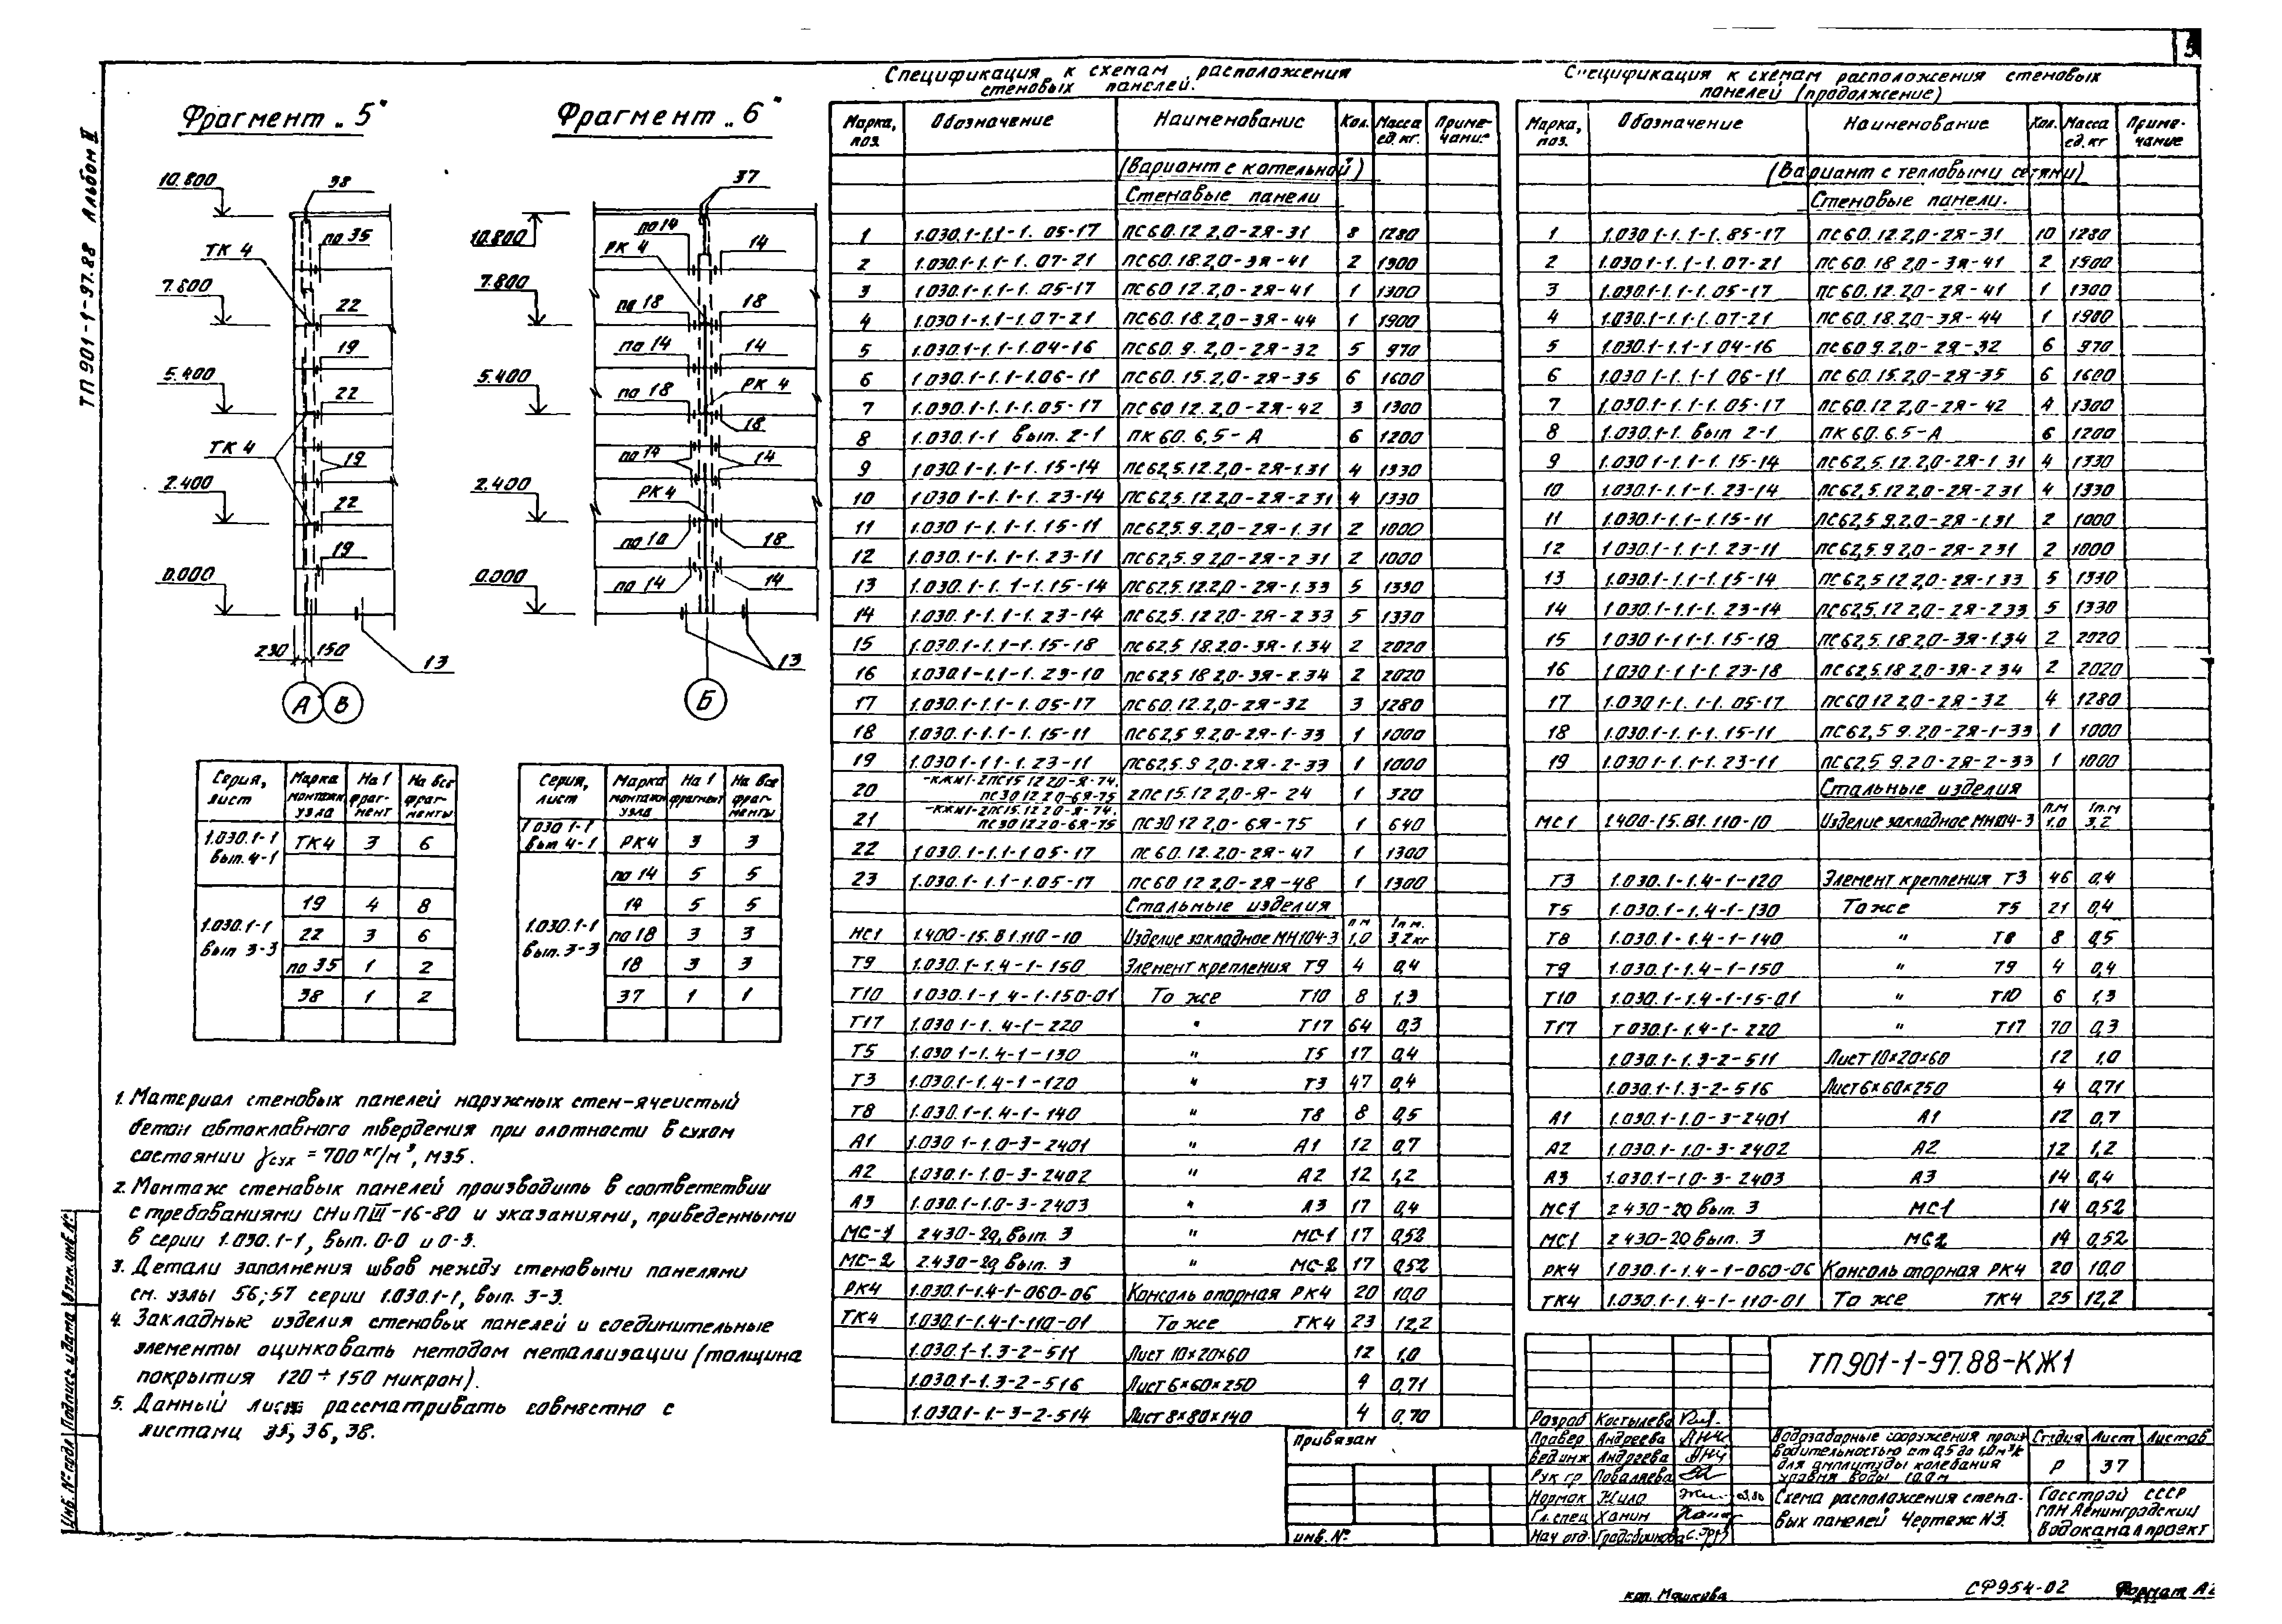 5
ТП 901-1-97.88 Альбом II
Фрагмент „5"
10.800
7.800
5.400
2.400
0.000
38
по 35
ТК 4
22
19
22
ТК 4
19
22
19
230
150
13
А
В
Фрагмент „6"
10.800
7.800
5.400
2.400
0.000
37
по 14
РК 4
14
по 18
18
по 14
14
по 18
РК 4
18
по 14
14
РК 4
18
по 14
14
13
Б
Серия, лист | Марка монтажн узла | На 1 фраг-мент | На все фраг-менты
1.030.1-1 вып. 4-1 | ТК4 | 3 | 6
1.030.1-1 вып 3-3 | 19 | 4 | 8
22 | 3 | 6
по 35 | 1 | 2
38 | 1 | 2
Серия, лист | Марка монтажн узла | На 1 фрагмент | На все фраг-менты
1 030 1-1 вып 4-1 | РК4 | 3 | 3
по 14 | 5 | 5
1.030.1-1 вып. 3-3 | 14 | 5 | 5
по 18 | 3 | 3
18 | 3 | 3
37 | 1 | 1
1. Материал стеновых панелей наружных стен-ячеистый
бетон автоклавного твердения при плотности в сухом
состоянии γсух = 700 кг/м³, М35.
2. Монтаж стеновых панелей производить в соответствии
с требованиями СНиПIII-16-80 и указаниями, приведенными
в серии 1.030.1-1, вып. 0-0 и 0-3.
3. Детали заполнения швов между стеновыми панелями
см. узлы 56; 57 серии 1.030.1-1, вып. 3-3.
4. Закладные изделия стеновых панелей и соединительные
элементы оцинковать методом металлизации (толщина
покрытия 120 ÷ 150 микрон).
5. Данный лист рассматривать совместно с
листами 35, 36, 38.
Спецификация к схемам расположения
стеновых панелей.
Марка, поз. | Обозначение | Наименование | Кол. | Масса ед. кг. | Приме-чание
(Вариант с котельной)
Стеновые панели
1 | 1.030.1-1.1-1. 05-17 | ПС60.12 2.0-2Я-31 | 8 | 1280
2 | 1.030.1-1.1-1. 07-21 | ПС60.18.2.0-3Я-41 | 2 | 1900
3 | 1.030.1-1.1-1. 05-17 | ПС60 12.2.0-2Я-41 | 1 | 1300
4 | 1.030 1-1.1-1.07-21 | ПС60.18.2.0-3Я-44 | 1 | 1900
5 | 1.030.1-1.1-1.04-16 | ПС60. 9. 2.0-2Я-32 | 5 | 970
6 | 1 030.1-1.1-1.06-11 | ПС60. 15.2.0-2Я-35 | 6 | 1600
7 | 1.030.1-1.1-1.05-17 | ПС60 12. 2.0-2Я-42 | 3 | 1300
8 | 1.030.1-1 вып. 2-1 | ПК 60. 6,5-А | 6 | 1200
9 | 1.030.1-1.1-1. 15-14 | ПС62,5.12.2,0-2Я-1.31 | 4 | 1330
10 | 1.030 1-1.1-1. 23-14 | ПС62,5.12.2,0-2Я-2 31 | 4 | 1330
11 | 1.030.1-1.1-1. 15-11 | ПС62,5.9.2.0-2Я-1.31 | 2 | 1000
12 | 1.030.1-1.1-1. 23-11 | ПС62,5.9 2,0-2Я-2 31 | 2 | 1000
13 | 1.030.1-1.1-1.15-14 | ПС62,5.12.2.0-2Я-1.33 | 5 | 1330
14 | 1.030.1-1.1-1. 23-14 | ПС62,5.12 20-2Я-2 33 | 5 | 1330
15 | 1.030.1-1.1-1. 15-18 | ПС62,5 18.2.0-3Я-1.34 | 2 | 2020
16 | 1.030.1-1.1-1. 23-10 | ПС62,5 18 2,0-3Я-2.34 | 2 | 2020
17 | 1.030.1-1.1-1. 05-17 | ПС60.12 2,0-2Я-32 | 3 | 1280
18 | 1.030.1-1.1-1. 15-11 | ПС62,5 9.2.0-2Я-1-33 | 1 | 1000
19 | 1.030.1-1.1-1. 23-11 | ПС62,5.9 2,0-2Я-2-33 | 1 | 1000
20 | -КЖИ1-2ПС15 12 2.0-Я-74. ПС30 12 2.0-6Я-75 | 2ПС15.12 2,0-Я-24 | 1 | 320
21 | -КЖИ1-2ПС15.12 2.0-Я-74. ПС30 12 2.0-6Я-75 | ПС30 12 2,0-6Я-75 | 1 | 640
22 | 1.030.1-1.1-1 05-17 | ПС60.12. 2.0-2Я-47 | 1 | 1300
23 | 1.030.1-1.1-1.05-17 | ПС60 12 2,0-2Я-48 | 1 | 1300
Стальные изделия
МС1 | 1.400-15.В1.110-10 | Изделие закладное МН104-3 | п м 1,0 | 1п м. 3,2 кг
Т9 | 1.030.1-1.4-1-150 | Элемент крепления Т9 | 4 | 0,4
Т10 | 1 030.1-1 4-1-150-01 | То же Т10 | 8 | 1,3
Т17 | 1.030 1-1. 4-1-220 | " Т17 | 64 | 0,3
Т5 | 1.030 1-1. 4-1-130 | " Т5 | 17 | 0,4
Т3 | 1.030.1-1. 4-1-120 | " Т3 | 47 | 0,4
Т8 | 1.030.1-1. 4-1-140 | " Т8 | 8 | 0,5
А1 | 1.030 1-1.0-3-2401 | " А1 | 12 | 0,7
А2 | 1.030.1-1.0-3-2402 | " А2 | 12 | 1,2
А3 | 1.030.1-1.0-3-2403 | " А3 | 17 | 0,4
МС-1 | 2 430-20, вып. 3 | " МС-1 | 17 | 0,52
МС-2 | 2.430-20, вып. 3 | " МС-2 | 17 | 0,52
РК4 | 1.030.1-1.4-1-060-06 | Консоль опорная РК4 | 20 | 10,0
ТК4 | 1.030.1-1.4-1-110-01 | То же ТК4 | 23 | 12,2
1.030.1-1.3-2-511 | Лист 10×20×60 | 12 | 1,0
1.030.1-1.3-2-516 | Лист 6×60×250 | 4 | 0,71
1.030.1-1.-3-2-514 | Лист 8×80×140 | 4 | 0,70
Спецификация к схемам расположения стеновых
панелей (продолжение)
Марка, поз. | Обозначение | Наименование | Кол. | Масса ед. кг | Приме-чание
(Вариант с тепловыми сетями)
Стеновые панели.
1 | 1.030 1-1.1-1. 85-17 | ПС60.12 2,0-2Я-31 | 10 | 1280
2 | 1.030 1-1.1-1.07-21 | ПС60.18 2.0-3Я-41 | 2 | 1900
3 | 1.030.1-1.1-1.05-17 | ПС60.12.2.0-2Я-41 | 1 | 1300
4 | 1.030.1-1.1-1.07-21 | ПС60.18.2.0-3Я-44 | 1 | 1900
5 | 1.030.1-1.1-1 04-16 | ПС60 9.2.0-2Я-32 | 6 | 970
6 | 1.030 1-1.1-1 06-11 | ПС60.15.2.0-2Я-35 | 6 | 1600
7 | 1.030.1-1.1-1.05-17 | ПС60.12 2,0-2Я-42 | 4 | 1300
8 | 1.030.1-1. вып 2-1 | ПК 60. 6.5-А | 6 | 1200
9 | 1.030.1-1.1-1. 15-14 | ПС62,5.12.2,0-2Я-1 31 | 4 | 1330
10 | 1.030.1-1.1-1. 23-14 | ПС62,5.12 2,0-2Я-2 31 | 4 | 1330
11 | 1.030.1-1.1-1.15-11 | ПС62,5 9.2.0-2Я-1.31 | 2 | 1000
12 | 1.030.1-1.1-1. 23-11 | ПС62,5.9 2,0-2Я-2 31 | 2 | 1000
13 | 1.030.1-1.1-1.15-14 | ПС62,5 12 2,0-2Я-1 33 | 5 | 1330
14 | 1 030.1-1.1-1. 23-14 | ПС62,5.12 2,0-2Я-2 33 | 5 | 1330
15 | 1.030 1-1 1-1. 15-18 | ПС62,5.18 2.0-3Я-1.34 | 2 | 2020
16 | 1 030 1-1 1-1. 23-18 | ПС62,5.18 2,0-3Я-2 34 | 2 | 2020
17 | 1.030 1-1. 1-1. 05-17 | ПС60 12 2,0-2Я-32 | 4 | 1280
18 | 1.030.1-1.1-1. 15-11 | ПС62,5 9.2.0-2Я-1-33 | 1 | 1000
19 | 1.030.1-1.1-1. 23-11 | ПС62,5 9.2.0-2Я-2-33 | 1 | 1000
Стальные изделия
МС1 | 1.400-15.В1. 110-10 | Изделие закладное МН104-3 | п.м 1,0 | 1п.м 3,2
Т3 | 1.030.1-1.4-1-120 | Элемент крепления Т3 | 46 | 0,4
Т5 | 1.030.1-1.4-1-130 | То же Т5 | 21 | 0,4
Т8 | 1.030.1-1.4-1-140 | " Т8 | 8 | 0,5
Т9 | 1.030.1-1.4-1-150 | " Т9 | 4 | 0,4
Т10 | 1.030.1-1.4-1-15-01 | " Т10 | 6 | 1,3
Т17 | 1.030.1-1.4-1-220 | " Т17 | 70 | 0,3
1.030.1-1.3-2-511 | Лист 10×20×60 | 12 | 1,0
1.030.1-1.3-2-516 | Лист 6×60×250 | 4 | 0,71
А1 | 1.030.1-1.0-3-2401 | А1 | 12 | 0,7
А2 | 1.030.1-1.0-3-2402 | А2 | 12 | 1,2
А3 | 1.030.1-1.0-3-2403 | А3 | 14 | 0,4
МС1 | 2 430-20 вып. 3 | МС1 | 14 | 0,52
МС1 | 2 430-20 вып. 3 | МС2 | 14 | 0,52
РК4 | 1 030.1-1.4-1-060-06 | Консоль опорная РК4 | 20 | 10,0
ТК4 | 1.030.1-1.4-1-110-01 | То же ТК4 | 25 | 12,2
Привязан
инв. №
ТП 901-1-97.88-КЖ1
Разраб Костылева
Провер Андреева
Вед инж Андреева
Рук гр Поваляева
Нормок Жило
Гл. спец Ханин
Нач отд.
Водозаборные сооружения произ
водительностью от 0,5 до 1,0 м³/с
для амплитуды колебания
уровня воды 10,0м
Стадия Лист Листов
Р 37
Схема расположения стено-
вых панелей Чертеж N3.
Госстрой СССР
ГПИ Ленинградский
Водоканалпроект
Инв. № подл Подпись и дата Взам. инв. №
коп. Машкова
СФ954-02
Формат А2